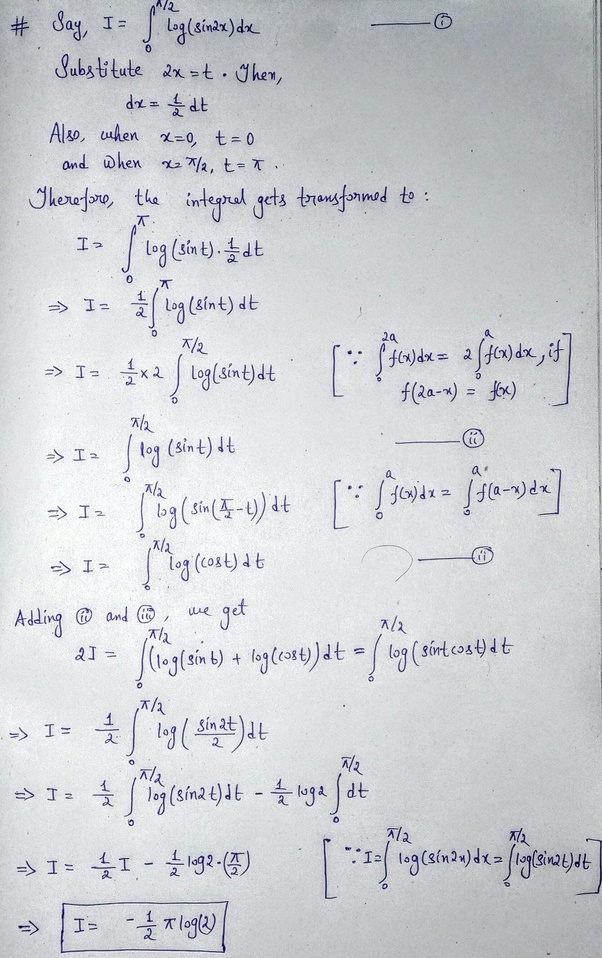 # Say, I = ∫₀^{π/2} log(sin2x)dx ——— (i)
Substitute 2x = t. Then,
dx = 1/2 dt
Also, when x=0, t=0
and when x=π/2, t=π.
Therefore, the integral gets transformed to:
I = ∫₀^{π} log(sint)·1/2 dt
⇒ I = 1/2 ∫₀^{π} log(sint) dt
⇒ I = 1/2 × 2 ∫₀^{π/2} log(sint)dt [∵ ∫₀^{2a} f(x)dx = 2∫₀^{a} f(x)dx, if
f(2a-x) = f(x)]
⇒ I = ∫₀^{π/2} log(sint) dt ——— (ii)
⇒ I = ∫₀^{π/2} log(sin(π/2-t)) dt [∵ ∫₀^{a} f(x)dx = ∫₀^{a} f(a-x)dx]
⇒ I = ∫₀^{π/2} log(cost) dt ——— (ii)
Adding (ii) and (iii), we get
2I = ∫₀^{π/2} (log(sint) + log(cost)) dt = ∫₀^{π/2} log(sint cost) dt
⇒ I = 1/2 ∫₀^{π/2} log(sin2t/2)dt
⇒ I = 1/2 ∫₀^{π/2} log(sin2t)dt - 1/2 log2 ∫₀^{π/2} dt
⇒ I = 1/2 I - 1/2 log2·(π/2) [∵ I=∫₀^{π/2} log(sin2x)dx = ∫₀^{π/2} log(sin2t)dt]
⇒ I = -1/2 π log(2)